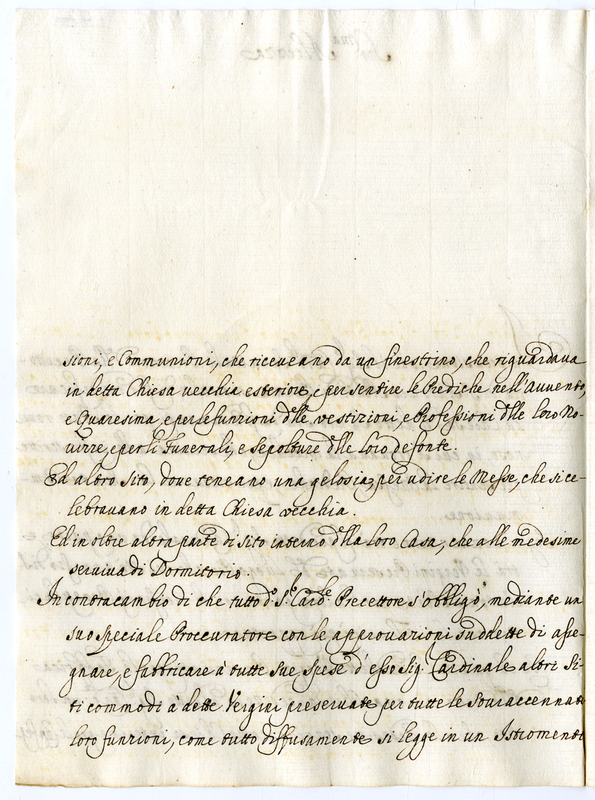 sioni, e Communioni, che riceveano da un finestrino, che riguardava
in detta Chiesa vecchia esteriore, e per sentire le Prediche nell'Avvento,
e Quaresima, e per le funzioni dlle vestizioni, e Professioni dlle loro No-
vizze, e per li Funerali, e Sepolture dlle loro defonte.
Ed altro sito, dove teneano una gelosia per udire le Messe, che si ce-
lebravano in detta Chiesa vecchia.
Ed in oltre altra parte di sito interno dlla loro Casa, che alle medesime
serviva di Dormitorio.
In contracambio di che tutto do. Sr. Cardle. Precettore s'obbligò, mediante un
suo speciale Proccuratore con le approvazioni suddette di asse-
gnare, e fabbricare à tutte sue spese d'esso Sig. Cardinale altri si-
ti commodi à dette Vergini preservate per tutte le sovraccennate
loro funzioni, come tutto diffusamente si legge in un Istromento